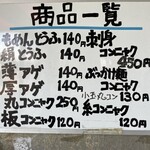 商品一覧
もめんとうふ 140円
絹とうふ 140円
薄アゲ 140円
厚アゲ 140円
丸コンニャク 250円
板コンニャク 120円
刺身コンニャク 450円
ぶっかけ麺コンニャク
小玉コン 130円
糸コンニャク 120円